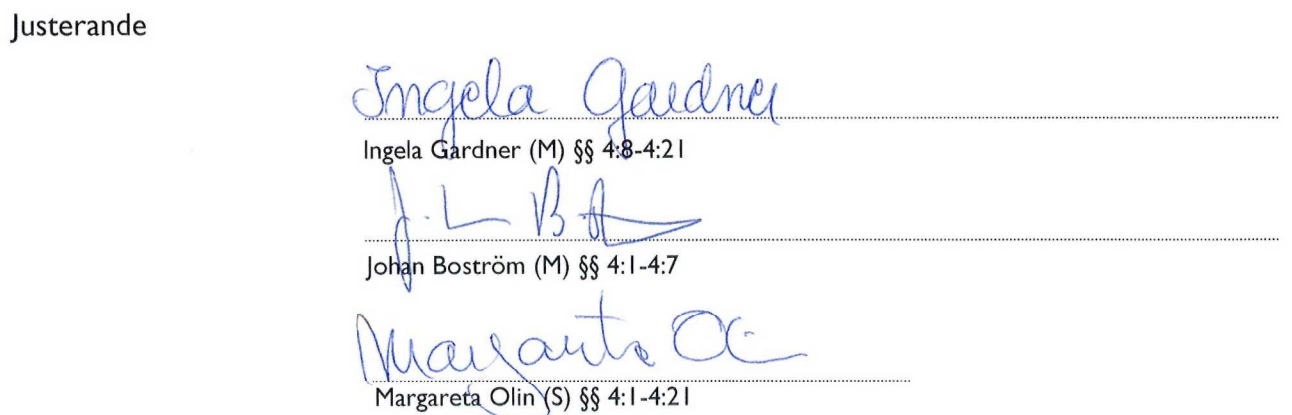 Justerande
Ingela Gardner
Ingela Gardner (M) §§ 4:8-4:21
Johan Boström (M) §§ 4:1-4:7
Margareta Olin (S) §§ 4:1-4:21